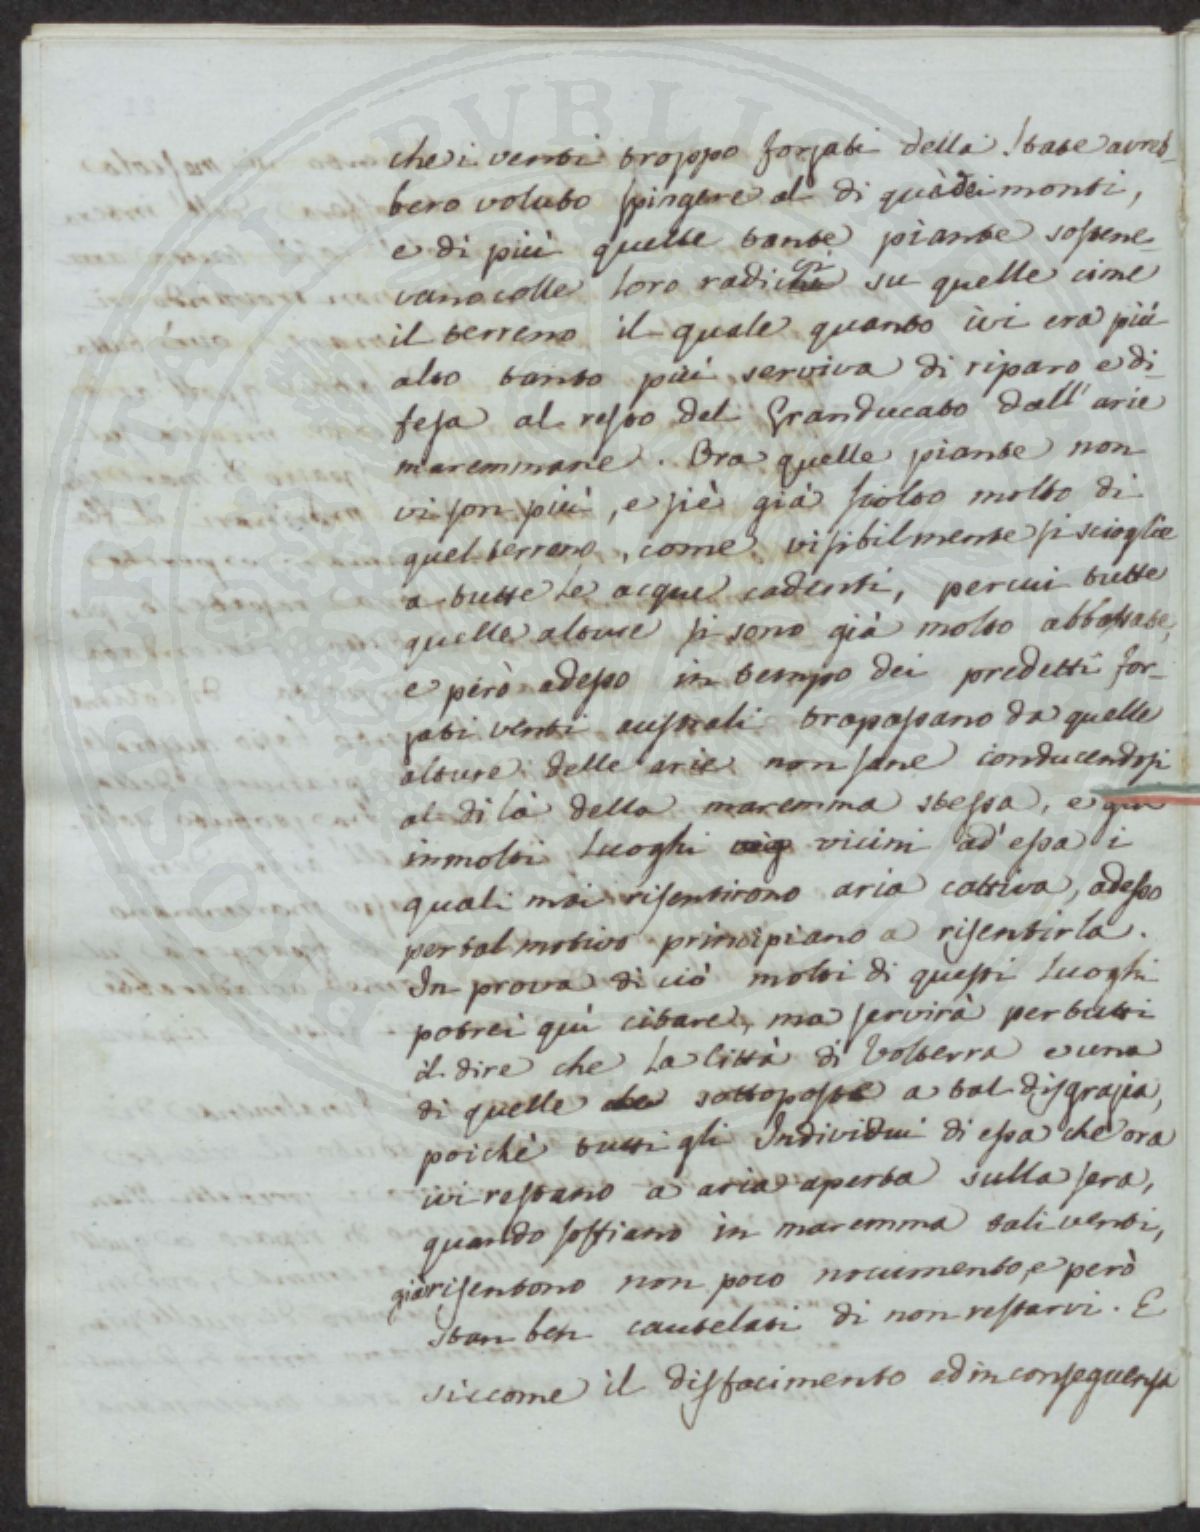 che i venti troppo forzati della state avreb-
bero voluto spingere al di quà dei monti,
e di più quelle tante piante sostene-
vano colle loro radici su quelle cime
il terreno il quale quanto ivi era più
alto tanto più serviva di riparo e di-
fesa al resto del Granducato dall' arie
maremmane. Ora quelle piante non
vi son più, e si è già sciolto molto di
quel terreno, come visibilmente si scioglie
a tutte le acque cadenti, per cui tutte
quelle alture si sono già molto abbassate,
e però adesso in tempo dei predetti for-
zati venti australi trapassano da quelle
alture delle arie non sane conducendosi
al di là della maremma stessa, e già
in molti Luoghi vicini ad' essa i
quali mai risentirono aria cattiva, adesso
per tal motivo principiano a risentirla.
In prova di ciò molti di questi Luoghi
potrei quì citare, ma servirà per tutti
il dire che la Città di Volterra e una
di quelle sottoposte a tal disgrazia,
poichè tutti gli Individui di essa che ora
ivi restano a aria aperta sulla sera,
quando soffiano in maremma tali venti,
già risentono non poco nocumento, e però
stan ben cautelati di non restarvi. E
siccome il disfacimento ed in conseguenza